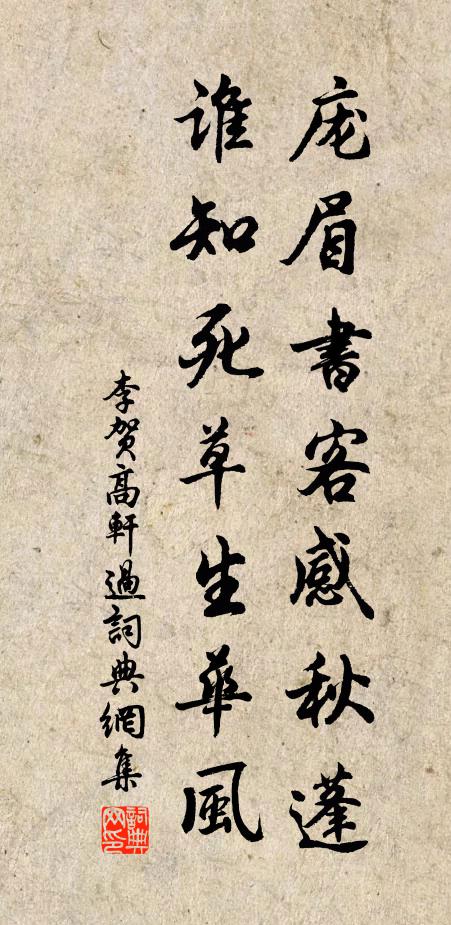 庞眉書客感秋蓬
誰知死草生華風
李贺高軒過詞典網集
詞典网印